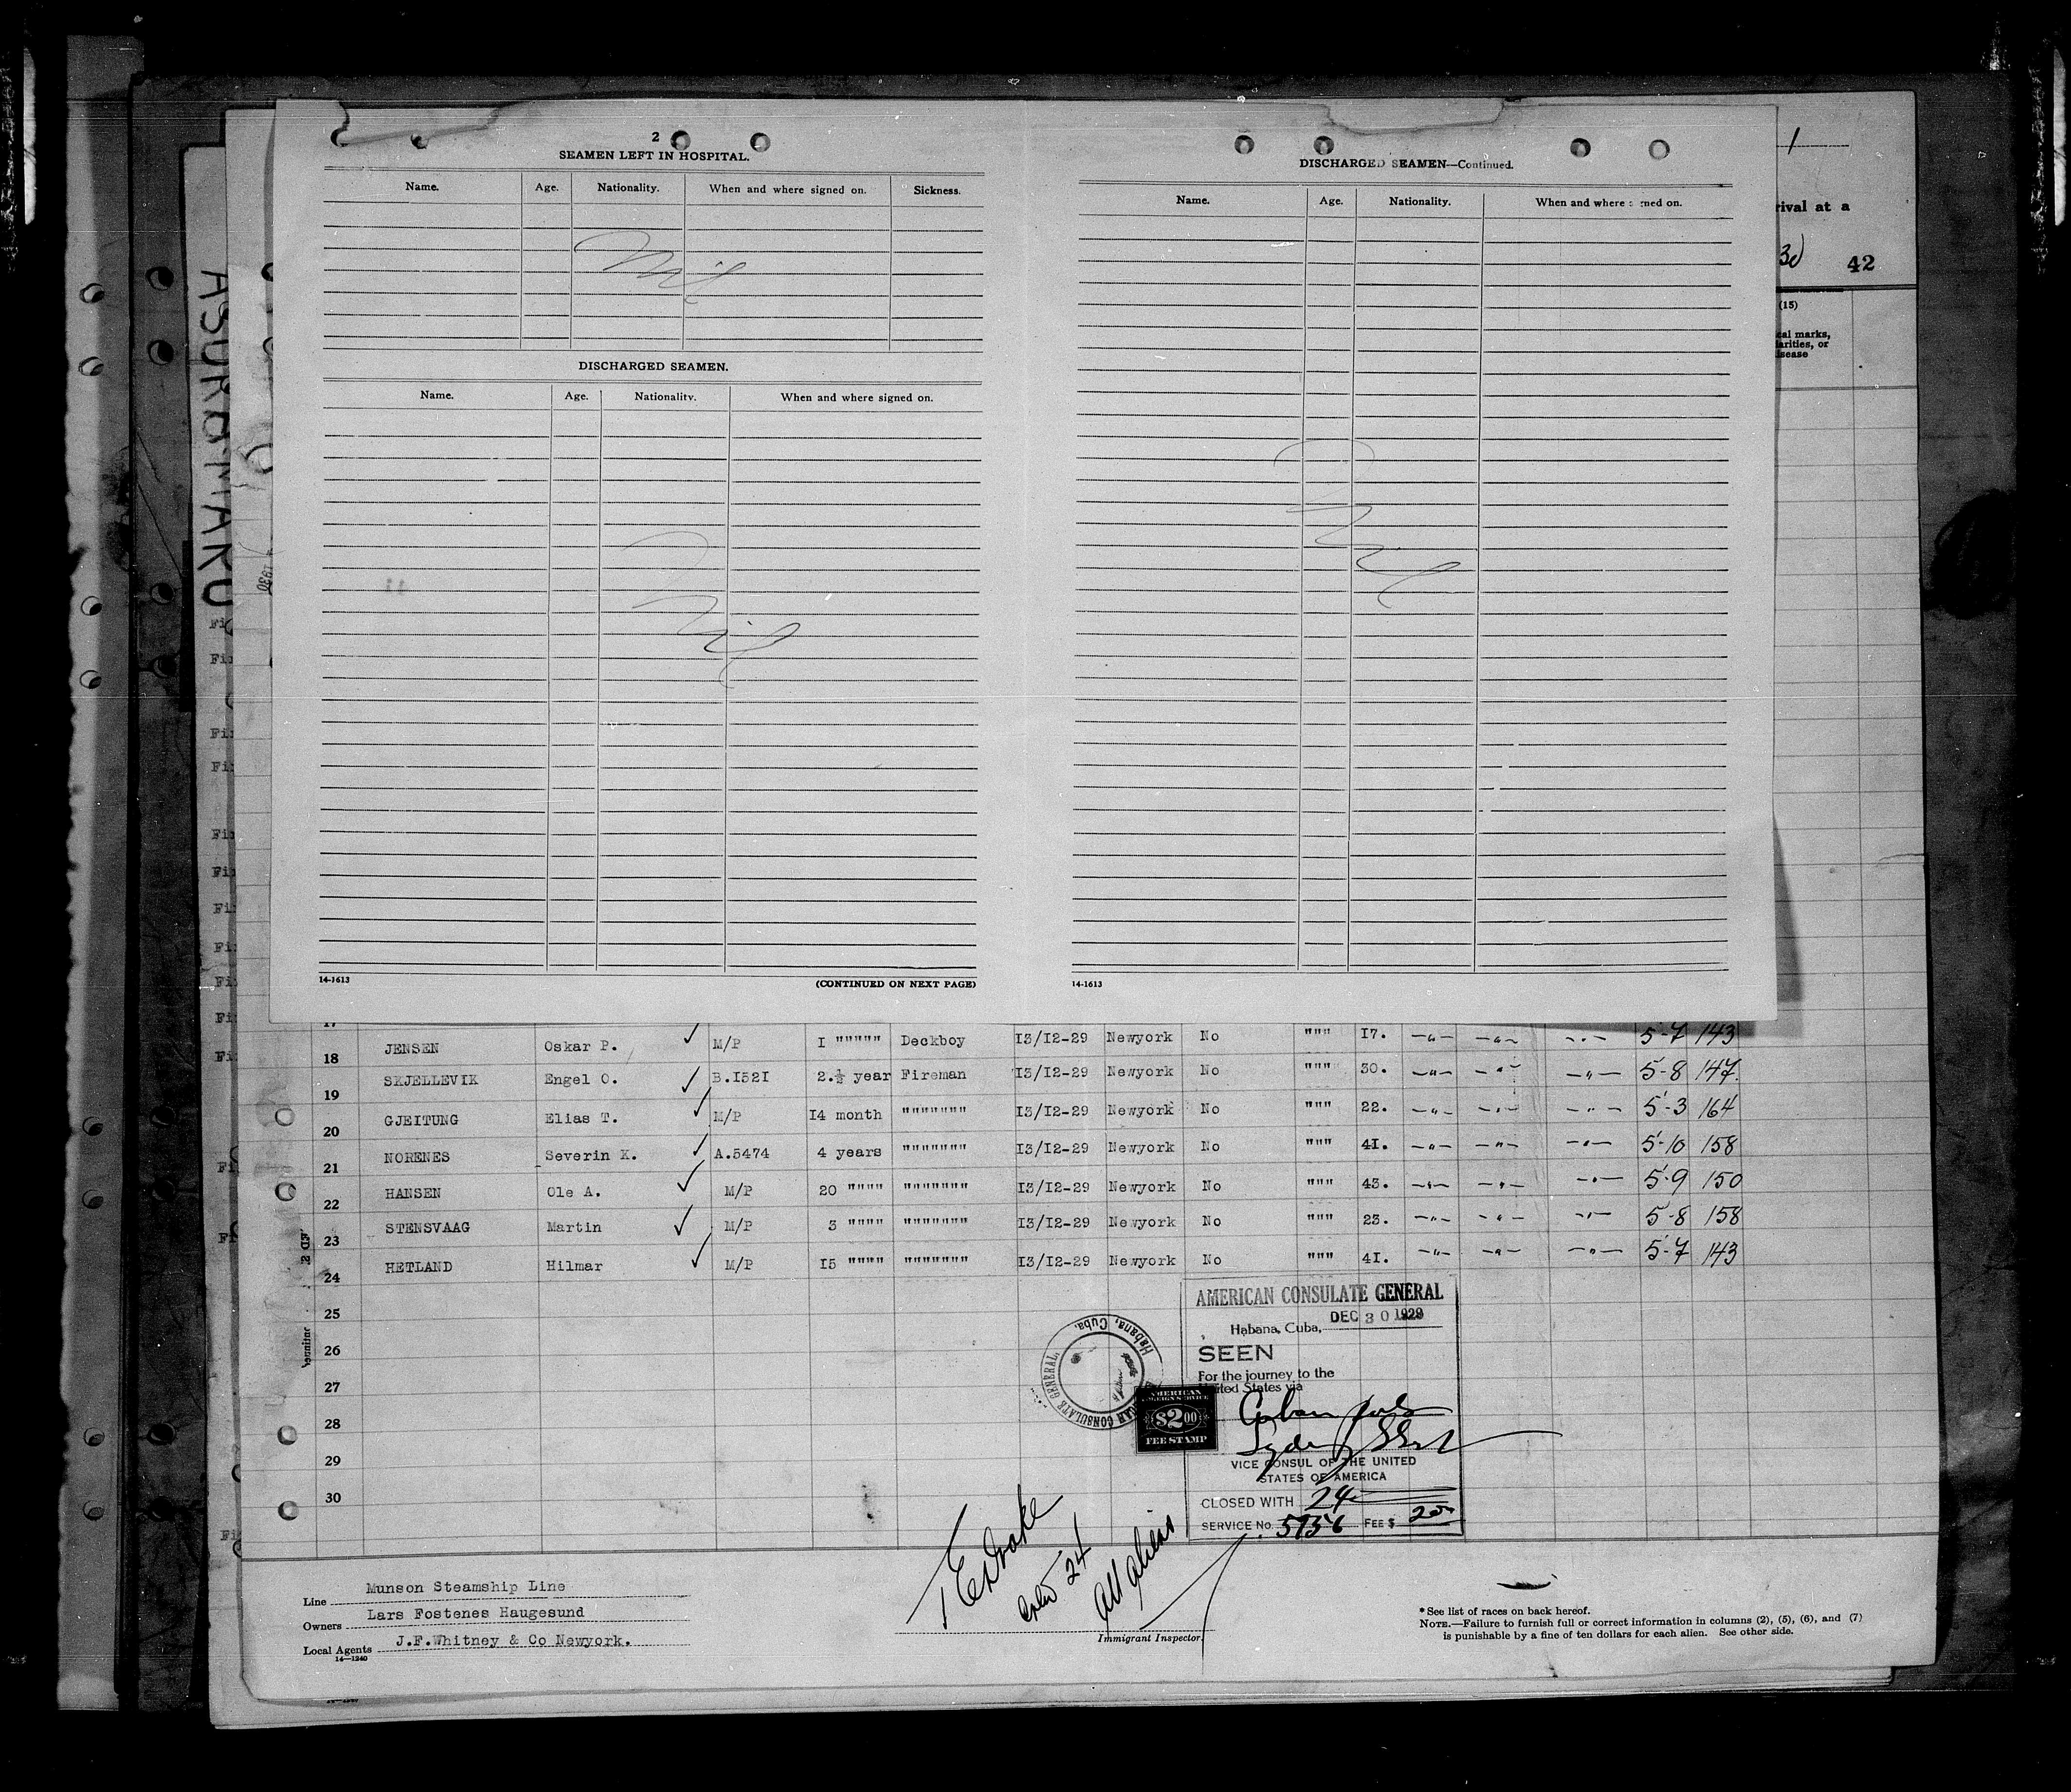 2
SEAMEN LEFT IN HOSPITAL.
Name. Age. Nationality. When and where signed on. Sickness.
Nil
DISCHARGED SEAMEN.
Name. Age. Nationality. When and where signed on.
Nil
14-1613 (CONTINUED ON NEXT PAGE)
DISCHARGED SEAMEN—Continued.
Name. Age. Nationality. When and where signed on.
Nil
14-1613
1
rival at a
30 42
(15)
cal marks,
arities, or
isease
ASURA MARU
1930
17
18 JENSEN Oskar P. ✓ M/P I """"" Deckboy I3/I2-29 Newyork No """ I7. —"— —"— —"— 5-7 143
19 SKJELLEVIK Engel O. ✓ B.I52I 2.½ year Fireman I3/I2-29 Newyork No """ 30. —"— —"— —"— 5-8 147.
20 GJEITUNG Elias T. ✓ M/P I4 month """"""" I3/I2-29 Newyork No """ 22. —"— —"— —"— 5-3 164
21 NORENES Severin K. ✓ A.5474 4 years """"""" I3/I2-29 Newyork No """ 4I. —"— —"— —"— 5-10 158
22 HANSEN Ole A. ✓ M/P 20 """" """"""" I3/I2-29 Newyork No """ 43. —"— —"— —"— 5-9 150
23 STENSVAAG Martin ✓ M/P 3 """" """"""" I3/I2-29 Newyork No """ 23. —"— —"— —"— 5-8 158
24 HETLAND Hilmar ✓ M/P I5 """" """"""" I3/I2-29 Newyork No """ 4I. —"— —"— —"— 5-7 143
25
26
27
28
29
30
AMERICAN CONSULATE GENERAL
DEC 30 1929
Habana, Cuba,
SEEN
For the journey to the
United States via
Cuban ports
VICE CONSUL OF THE UNITED
STATES OF AMERICA
CLOSED WITH 24
SERVICE No. 5756 FEE $ 2.00
CONSULATE GENERAL, Habana, Cuba.
AMERICAN
FOREIGN SERVICE
$2.00
FEE STAMP
24
All aliens
Immigrant Inspector.
Line Munson Steamship Line
Owners Lars Fostenes Haugesund
Local Agents J.F.Whitney & Co Newyork.
14—1240
* See list of races on back hereof.
NOTE.—Failure to furnish full or correct information in columns (2), (5), (6), and (7)
is punishable by a fine of ten dollars for each alien. See other side.